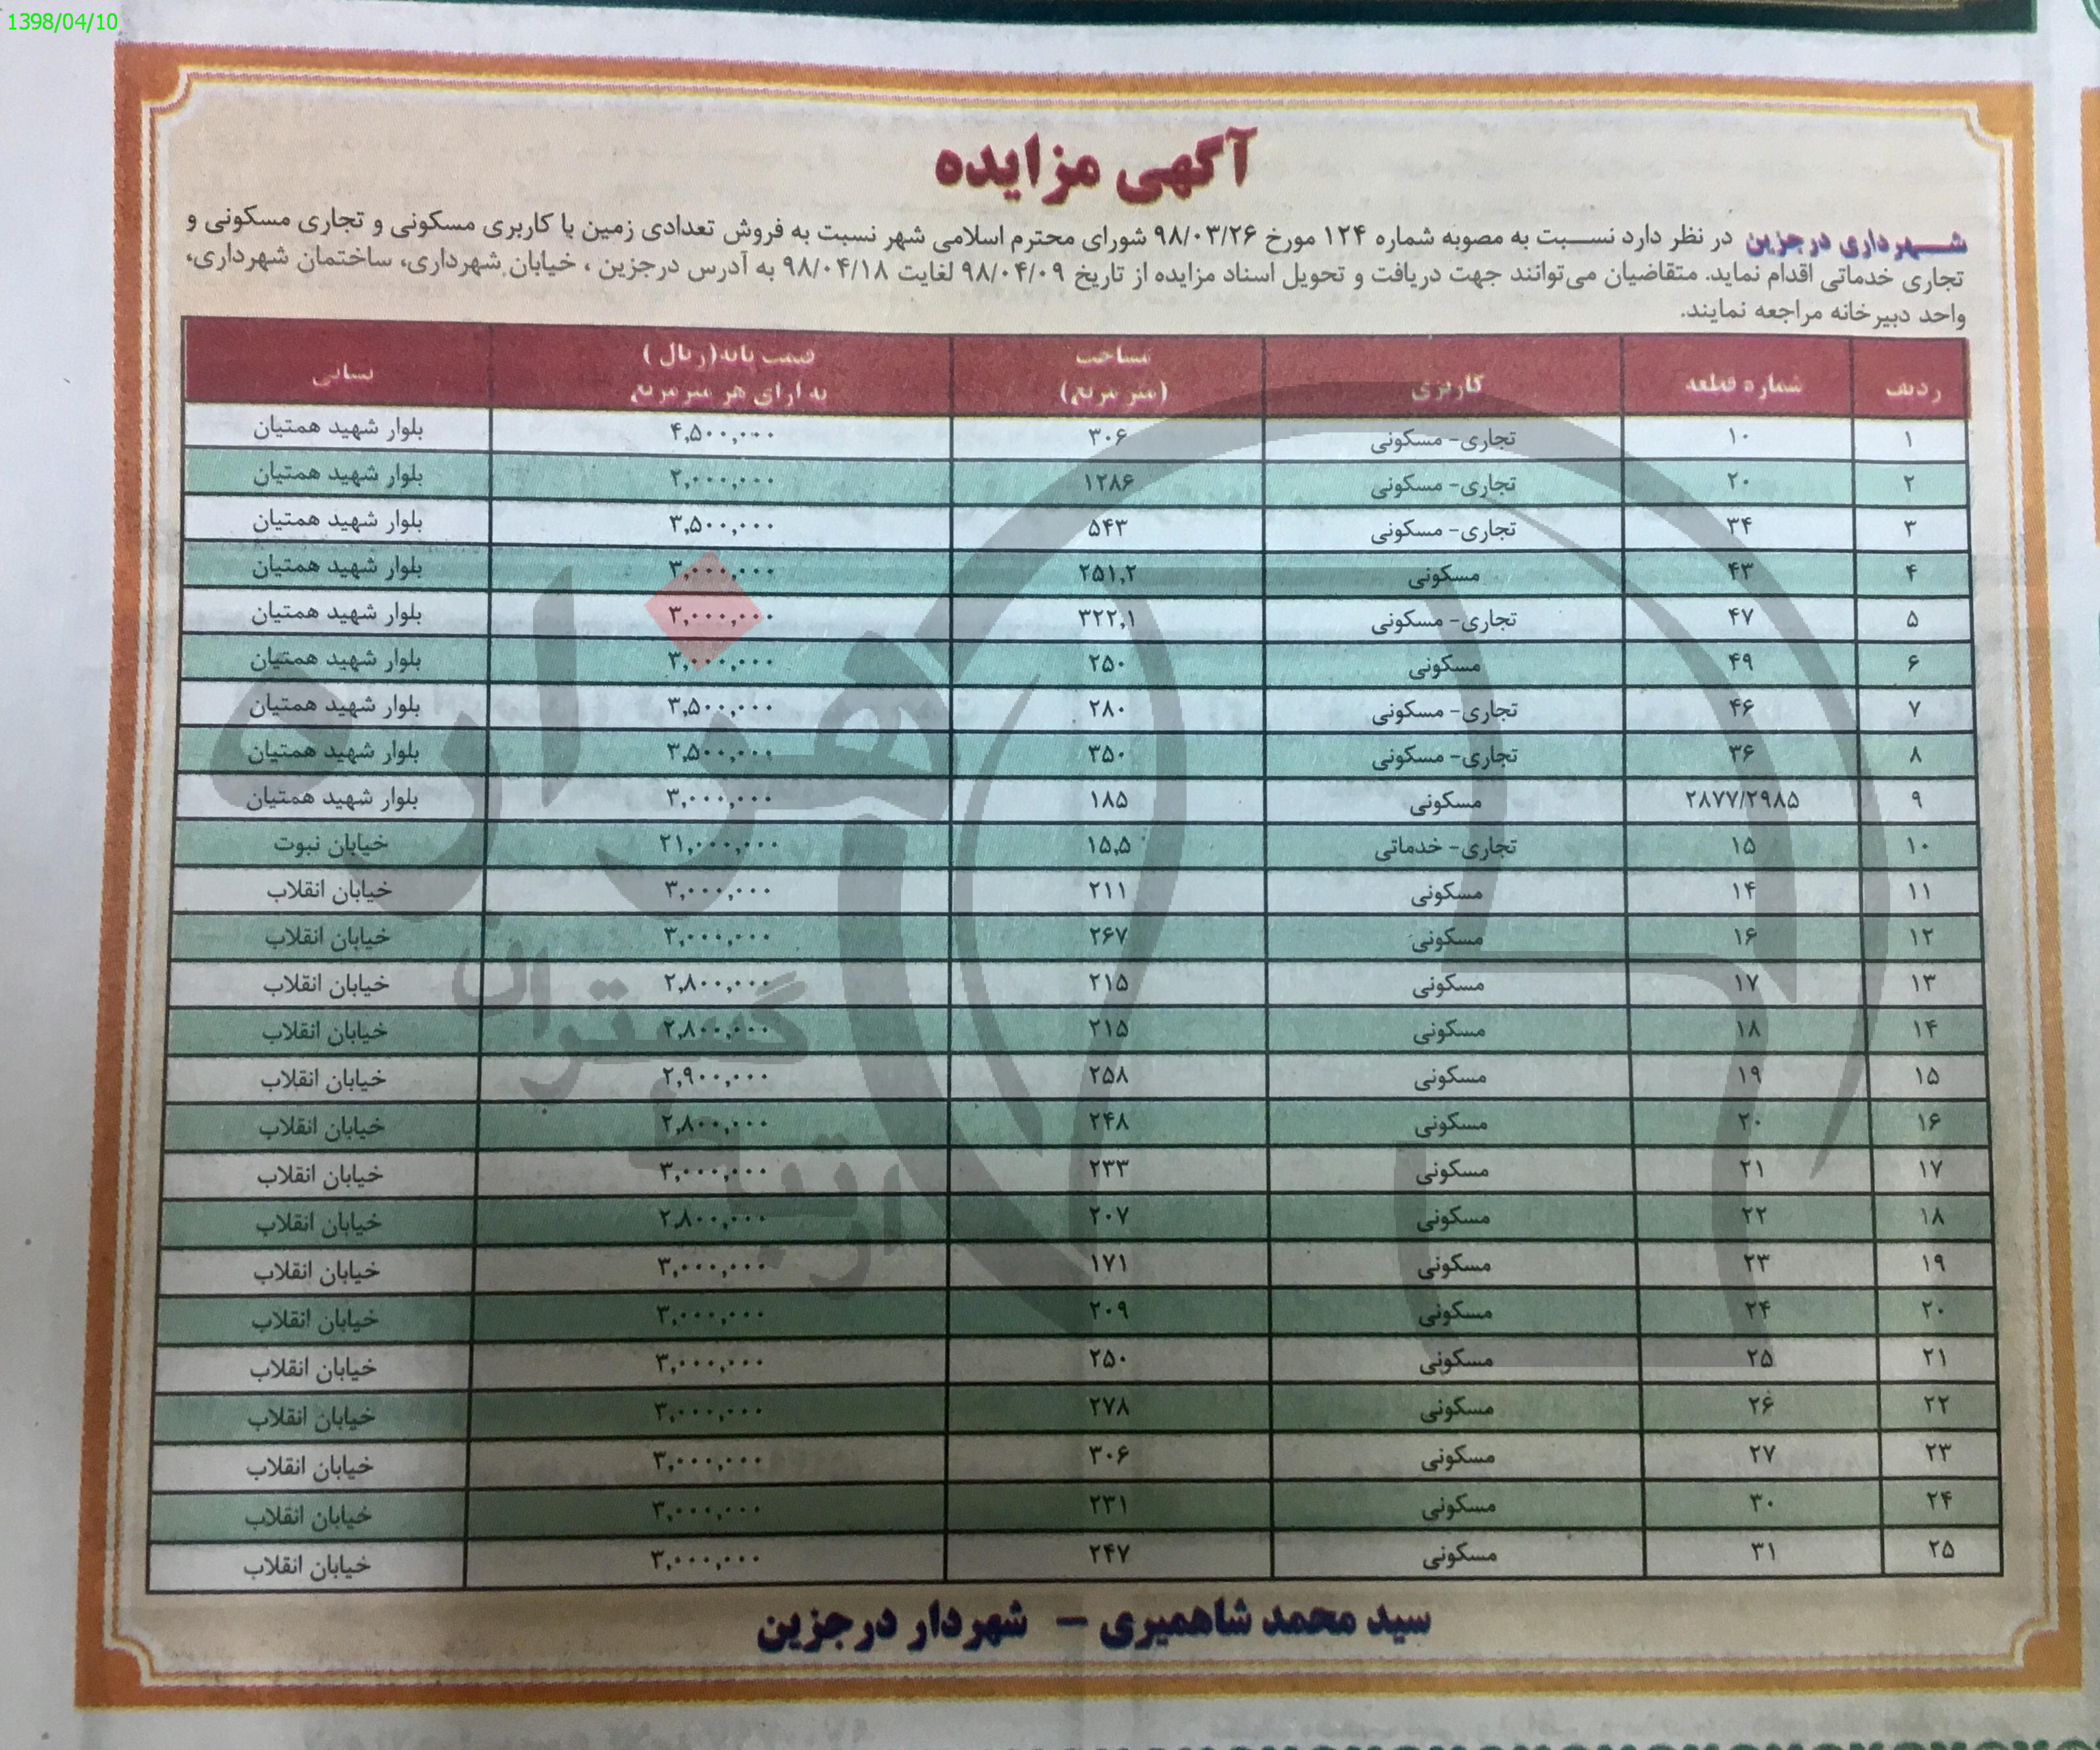 1398/04/10
آگهی مزایده
شهرداری درجزین در نظر دارد نسبت به مصوبه شماره ۱۲۴ مورخ ۹۸/۰۳/۲۶ شورای محترم اسلامی شهر نسبت به فروش تعدادی زمین با کاربری مسکونی و تجاری مسکونی و
تجاری خدماتی اقدام نماید. متقاضیان می‌توانند جهت دریافت و تحویل اسناد مزایده از تاریخ ۹۸/۰۴/۰۹ لغایت ۹۸/۰۴/۱۸ به آدرس درجزین ، خیابان شهرداری، ساختمان شهرداری،
واحد دبیرخانه مراجعه نمایند.
ردیف شماره قطعه کاربری مساحت (متر مربع) قیمت پایه(ریال ) به ازای هر متر مربع نشانی
۱ ۱۰ تجاری- مسکونی ۳۰۶ ۴,۵۰۰,۰۰۰ بلوار شهید همتیان
۲ ۲۰ تجاری- مسکونی ۱۲۸۶ ۲,۰۰۰,۰۰۰ بلوار شهید همتیان
۳ ۳۴ تجاری- مسکونی ۵۴۳ ۳,۵۰۰,۰۰۰ بلوار شهید همتیان
۴ ۴۳ مسکونی ۲۵۱,۲ ۳,۰۰۰,۰۰۰ بلوار شهید همتیان
۵ ۴۷ تجاری- مسکونی ۳۲۲,۱ ۳,۰۰۰,۰۰۰ بلوار شهید همتیان
۶ ۴۹ مسکونی ۲۵۰ ۳,۰۰۰,۰۰۰ بلوار شهید همتیان
۷ ۴۶ تجاری- مسکونی ۲۸۰ ۳,۵۰۰,۰۰۰ بلوار شهید همتیان
۸ ۳۶ تجاری- مسکونی ۳۵۰ ۳,۵۰۰,۰۰۰ بلوار شهید همتیان
۹ ۲۸۷۷/۲۹۸۵ مسکونی ۱۸۵ ۳,۰۰۰,۰۰۰ بلوار شهید همتیان
۱۰ ۱۵ تجاری- خدماتی ۱۵,۵ ۲۱,۰۰۰,۰۰۰ خیابان نبوت
۱۱ ۱۴ مسکونی ۲۱۱ ۳,۰۰۰,۰۰۰ خیابان انقلاب
۱۲ ۱۶ مسکونی ۲۶۷ ۳,۰۰۰,۰۰۰ خیابان انقلاب
۱۳ ۱۷ مسکونی ۲۱۵ ۲,۸۰۰,۰۰۰ خیابان انقلاب
۱۴ ۱۸ مسکونی ۲۱۵ ۲,۸۰۰,۰۰۰ خیابان انقلاب
۱۵ ۱۹ مسکونی ۲۵۸ ۲,۹۰۰,۰۰۰ خیابان انقلاب
۱۶ ۲۰ مسکونی ۲۴۸ ۲,۸۰۰,۰۰۰ خیابان انقلاب
۱۷ ۲۱ مسکونی ۲۳۳ ۳,۰۰۰,۰۰۰ خیابان انقلاب
۱۸ ۲۲ مسکونی ۲۰۷ ۲,۸۰۰,۰۰۰ خیابان انقلاب
۱۹ ۲۳ مسکونی ۱۷۱ ۳,۰۰۰,۰۰۰ خیابان انقلاب
۲۰ ۲۴ مسکونی ۲۰۹ ۳,۰۰۰,۰۰۰ خیابان انقلاب
۲۱ ۲۵ مسکونی ۲۵۰ ۳,۰۰۰,۰۰۰ خیابان انقلاب
۲۲ ۲۶ مسکونی ۲۷۸ ۳,۰۰۰,۰۰۰ خیابان انقلاب
۲۳ ۲۷ مسکونی ۳۰۶ ۳,۰۰۰,۰۰۰ خیابان انقلاب
۲۴ ۳۰ مسکونی ۲۳۱ ۳,۰۰۰,۰۰۰ خیابان انقلاب
۲۵ ۳۱ مسکونی ۲۴۷ ۳,۰۰۰,۰۰۰ خیابان انقلاب
سید محمد شاهمیری – شهردار درجزین